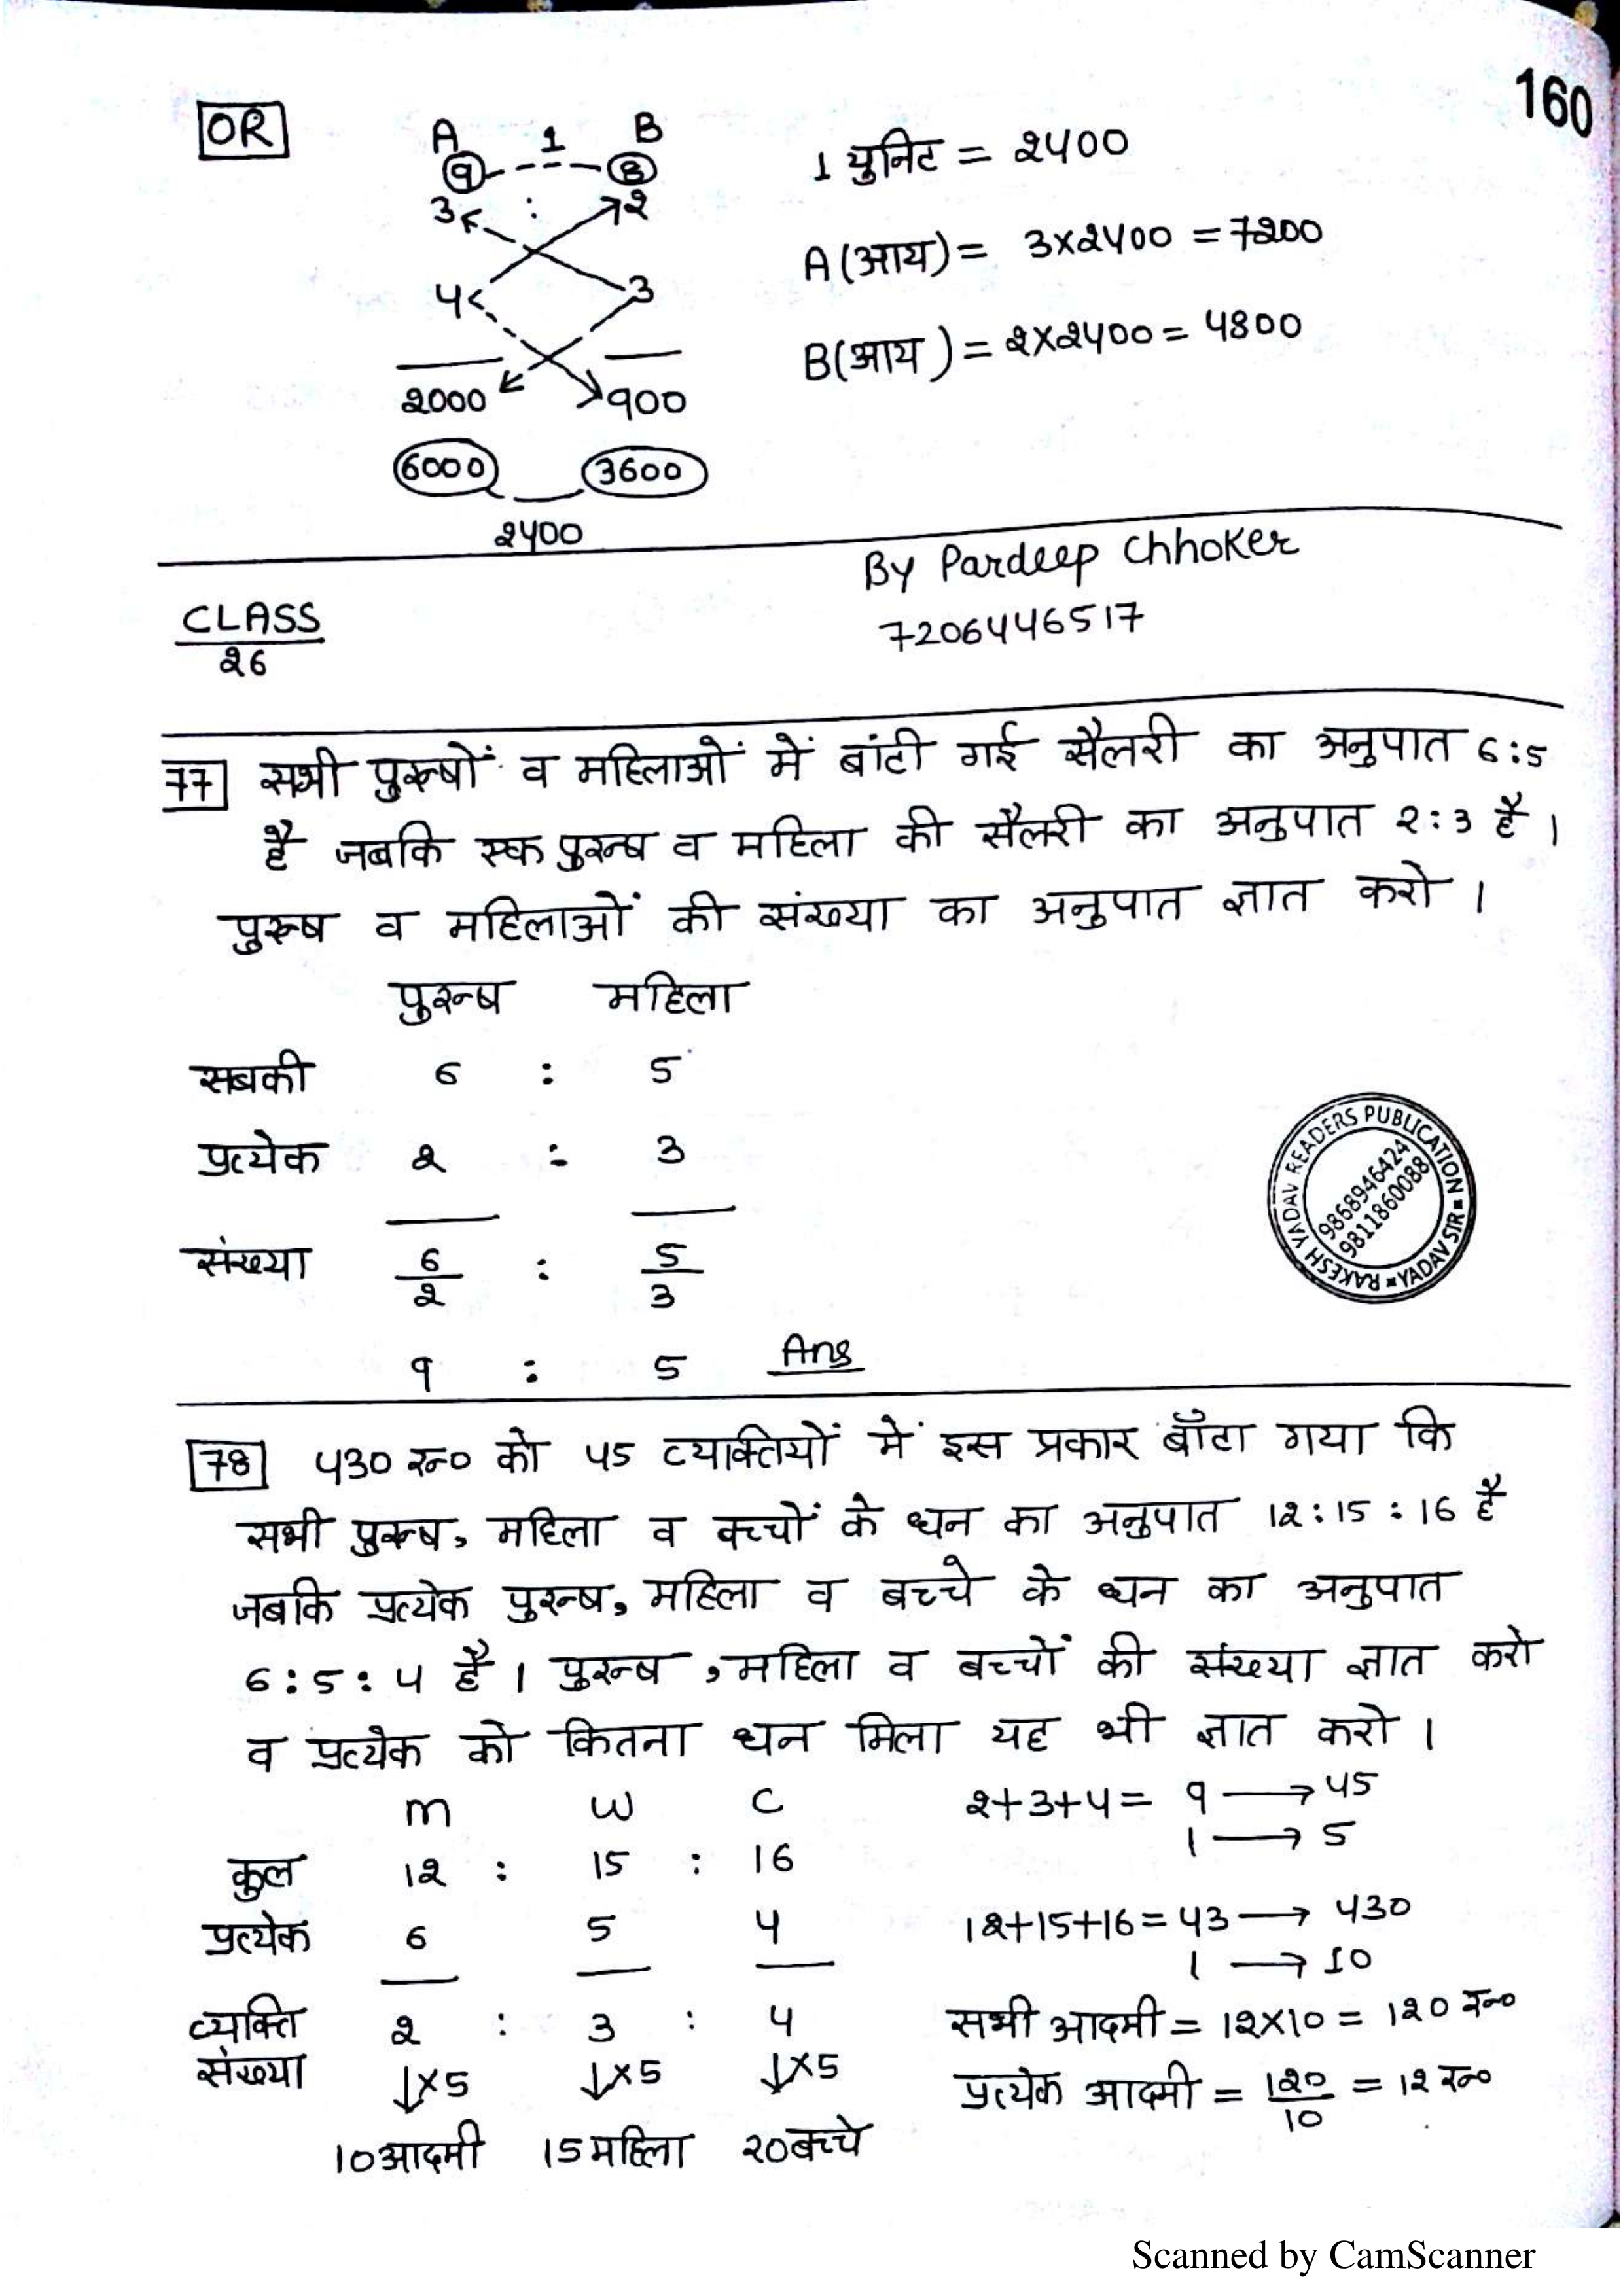 160
OR
A 1 B
9 8
3 : 2
4 3
2000 900
6000 3600
2400
1 युनिट = 2400
A (आय) = 3x2400 = 7200
B(आय) = 2x2400 = 4800
By Pardeep Chhoker
7206446517
CLASS
26
77 सभी पुरूषों व महिलाओं में बांटी गई सैलरी का अनुपात 6:5
है जबकि एक पुरूष व महिला की सैलरी का अनुपात 2:3 है।
पुरूष व महिलाओं की संख्या का अनुपात ज्ञात करो।
पुरूष महिला
सबकी 6 : 5
प्रत्येक 2 : 3
संख्या 6/2 : 5/3
9 : 5 Ans
RAKESH YADAV READERS PUBLICATION
9868946424
9811860088
YADAV SIR
78 430 रू० को 45 व्यक्तियों में इस प्रकार बाँटा गया कि
सभी पुरूष, महिला व बच्चों के धन का अनुपात 12:15:16 है
जबकि प्रत्येक पुरूष, महिला व बच्चे के धन का अनुपात
6:5:4 है। पुरूष, महिला व बच्चों की संख्या ज्ञात करो
व प्रत्येक को कितना धन मिला यह भी ज्ञात करो।
m w c
कुल 12 : 15 : 16
प्रत्येक 6 5 4
व्यक्ति 2 : 3 : 4
संख्या ↓x5 ↓x5 ↓x5
10आदमी 15महिला 20बच्चे
2+3+4 = 9 → 45
1 → 5
12+15+16 = 43 → 430
1 → 10
सभी आदमी = 12x10 = 120 रू०
प्रत्येक आदमी = 120/10 = 12 रू०
Scanned by CamScanner